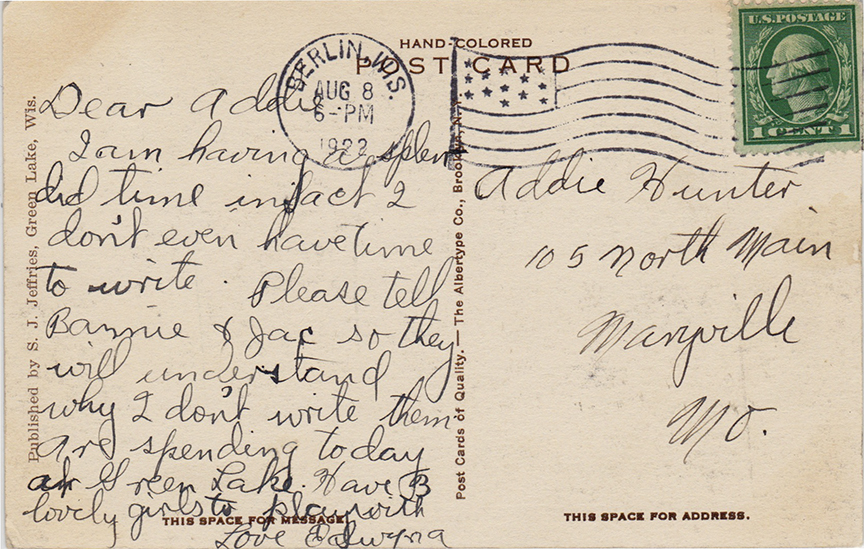 HAND-COLORED
POST CARD
BERLIN, WIS.
AUG 8
6-PM
1922
U.S. POSTAGE
1 CENT 1
Dear Addie
I am having a splen
did time infact I
don't even have time
to write. Please tell
Bannie & Jac so they
will understand
why I don't write them
Are spending today
at Green Lake. Have 3
lovely girls to play with
Love Edwyna
Addie Hunter
105 North Main
Maryville
Mo.
Published by S. J. Jeffries, Green Lake, Wis.
Post Cards of Quality. — The Albertype Co., Brooklyn, N.Y.
THIS SPACE FOR MESSAGE
THIS SPACE FOR ADDRESS.